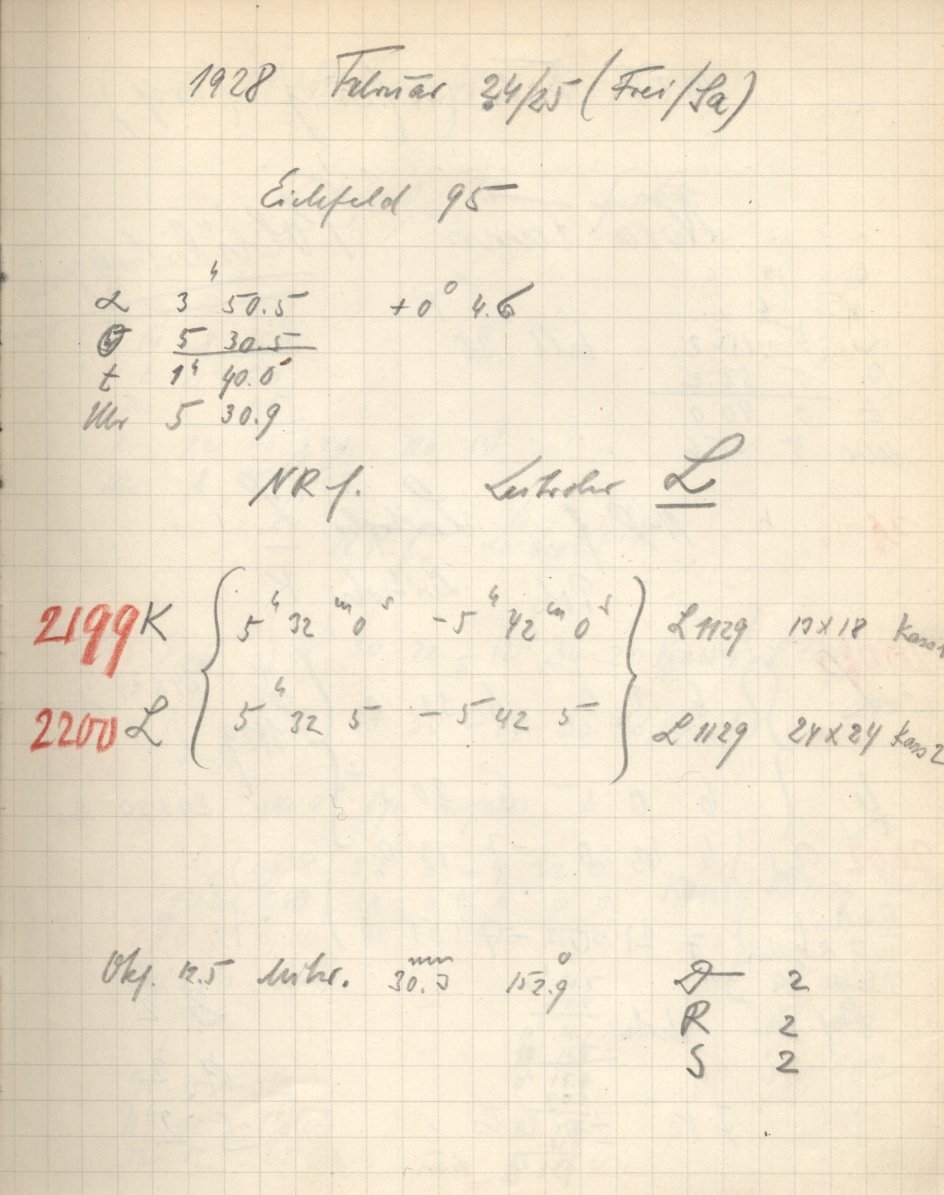 1928 Februar 24/25 (Frei/Sa)
Eichfeld 95
α 3ʰ 50.5 +0° 4.6
Θ 5 30.5
t 1ʰ 40.0
Uhr 5 30.9
NR f. Leitrohr L
2199 K { 5ʰ 32ᵐ 0ˢ - 5ʰ 42ᵐ 0ˢ } L 1129 13x18 Kass 1
2200 L { 5ʰ 32 5 - 5 42 5 } L 1129 24x24 Kass 2
Okf. 12.5 Mikr. 30.3 mm 152.9°
D 2
R 2
S 2